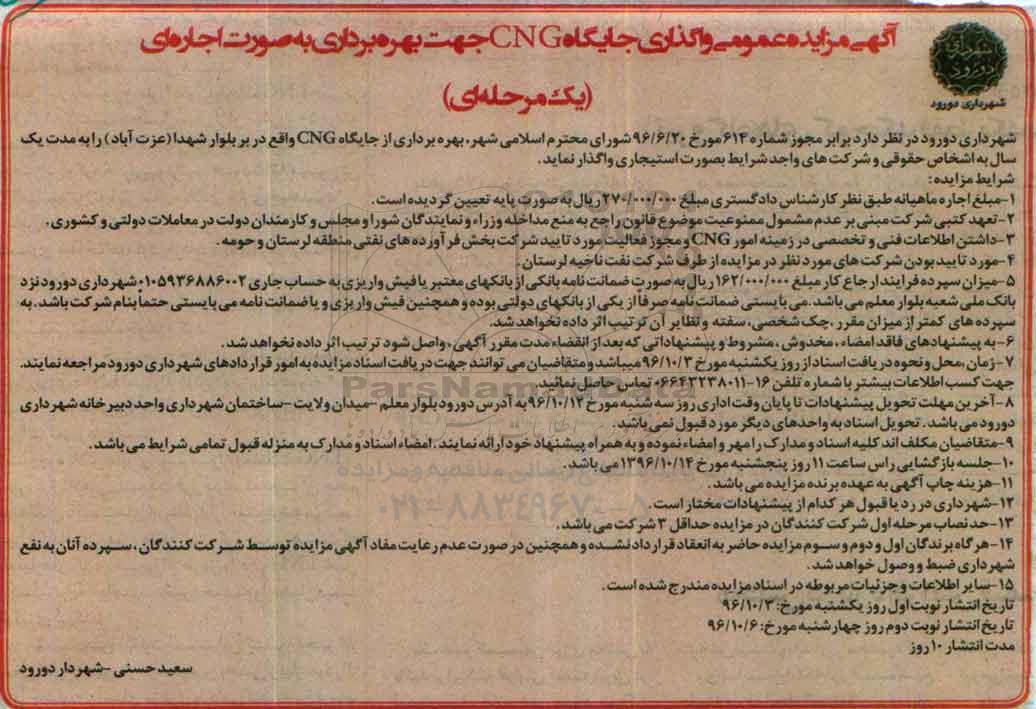 آگهی مزایده عمومی واگذاری جایگاه CNG جهت بهره برداری به صورت اجاره ای
(یک مرحله ای)
شهرداری دورود
شهرداری دورود
شهرداری دورود در نظر دارد برابر مجوز شماره ۶۱۴ مورخ ۹۶/۶/۲۰ شورای محترم اسلامی شهر، بهره برداری از جایگاه CNG واقع در بر بلوار شهدا (عزت آباد) را به مدت یک
سال به اشخاص حقوقی و شرکت های واجد شرایط بصورت استیجاری واگذار نماید.
شرایط مزایده:
۱-مبلغ اجاره ماهیانه طبق نظر کارشناس دادگستری مبلغ ۲۷۰/۰۰۰/۰۰۰ ریال به صورت پایه تعیین گردیده است.
۲-تعهد کتبی شرکت مبنی بر عدم مشمول ممنوعیت موضوع قانون راجع به منع مداخله وزراء و نمایندگان شورا و مجلس و کارمندان دولت در معاملات دولتی و کشوری.
۳-داشتن اطلاعات فنی و تخصصی در زمینه امور CNG و مجوز فعالیت مورد تایید شرکت پخش فرآورده های نفتی منطقه لرستان و حومه.
۴-مورد تایید بودن شرکت های مورد نظر در مزایده از طرف شرکت نفت ناحیه لرستان.
۵-میزان سپرده فرایند ارجاع کار مبلغ ۱۶۲/۰۰۰/۰۰۰ ریال به صورت ضمانت نامه بانکی از بانکهای معتبر یا فیش واریزی به حساب جاری ۰۱۰۵۹۳۶۸۸۶۰۰۲ شهرداری دورود نزد
بانک ملی شعبه بلوار معلم می باشد. می بایستی ضمانت نامه صرفاً از یکی از بانکهای دولتی بوده و همچنین فیش واریزی و یا ضمانت نامه می بایستی حتماً بنام شرکت باشد. به
سپرده های کمتر از میزان مقرر، چک شخصی، سفته و نظایر آن ترتیب اثر داده نخواهد شد.
۶-به پیشنهادهای فاقد امضاء، مخدوش، مشروط و پیشنهاداتی که بعد از انقضاء مدت مقرر آگهی، واصل شود ترتیب اثر داده نخواهد شد.
۷-زمان، محل و نحوه دریافت اسناد از روز یکشنبه مورخ ۹۶/۱۰/۳ میباشد و متقاضیان می توانند جهت دریافت اسناد مزایده به امور قراردادهای شهرداری دورود مراجعه نمایند.
جهت کسب اطلاعات بیشتر با شماره تلفن ۱۶-۰۶۶۴۳۲۳۸۰۱۱ تماس حاصل نمائید.
۸-آخرین مهلت تحویل پیشنهادات تا پایان وقت اداری روز سه شنبه مورخ ۹۶/۱۰/۱۲ به آدرس دورود بلوار معلم -میدان ولایت -ساختمان شهرداری واحد دبیرخانه شهرداری
دورود می باشد. تحویل اسناد به واحدهای دیگر مورد قبول نمی باشد.
۹-متقاضیان مکلف اند کلیه اسناد و مدارک را مهر و امضاء نموده و به همراه پیشنهاد خود ارائه نمایند. امضاء اسناد و مدارک به منزله قبول تمامی شرایط می باشد.
۱۰-جلسه بازگشایی راس ساعت ۱۱ روز پنجشنبه مورخ ۱۳۹۶/۱۰/۱۴ می باشد.
۱۱-هزینه چاپ آگهی به عهده برنده مزایده می باشد.
۱۲-شهرداری در رد یا قبول هر کدام از پیشنهادات مختار است.
۱۳-حد نصاب مرحله اول شرکت کنندگان در مزایده حداقل ۳ شرکت می باشد.
۱۴-هرگاه برندگان اول و دوم و سوم مزایده حاضر به انعقاد قرارداد نشده و همچنین در صورت عدم رعایت مفاد آگهی مزایده توسط شرکت کنندگان، سپرده آنان به نفع
شهرداری ضبط و وصول خواهد شد.
۱۵-سایر اطلاعات و جزئیات مربوطه در اسناد مزایده مندرج شده است.
تاریخ انتشار نوبت اول روز یکشنبه مورخ: ۹۶/۱۰/۳
تاریخ انتشار نوبت دوم روز چهارشنبه مورخ: ۹۶/۱۰/۶
مدت انتشار ۱۰ روز
سعید حسنی -شهردار دورود
ParsNamadData
۰۲۱-۸۸۳۴۹۶۷۰-۵